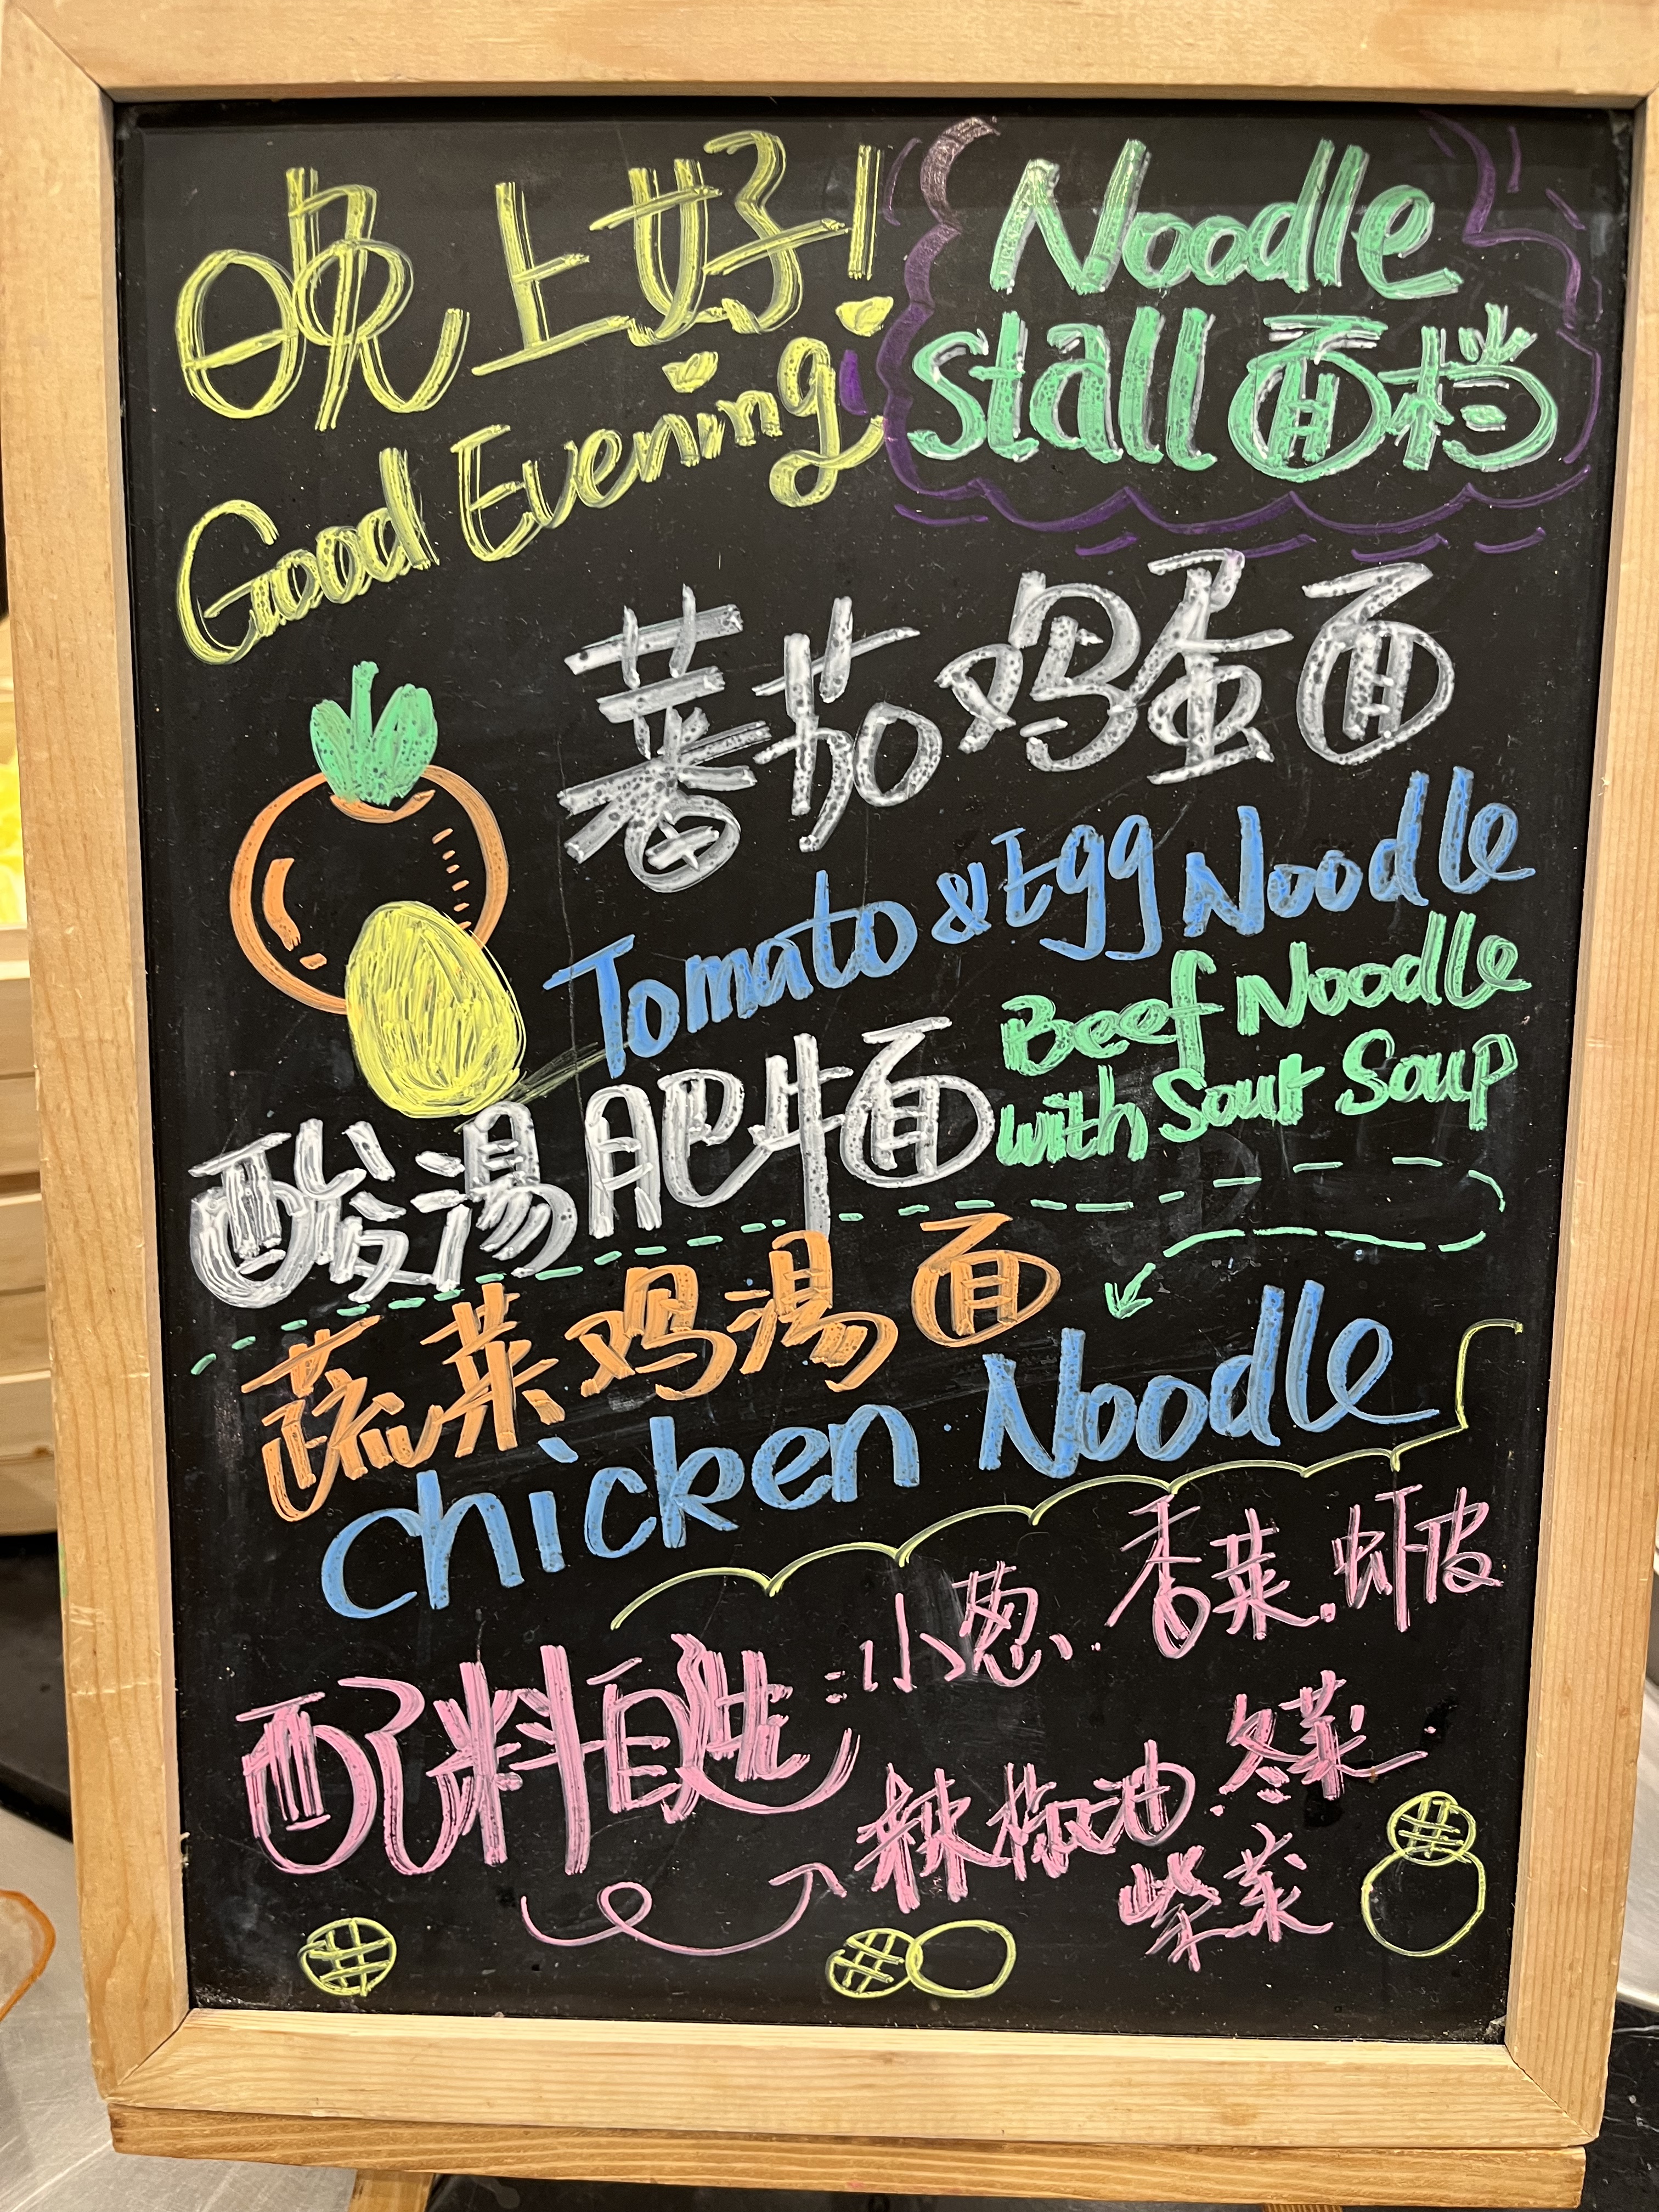 晚上好!
Good Evening
Noodle
stall 面档
蕃茄鸡蛋面
Tomato & Egg Noodle
酸湯肥牛面
Beef Noodle
with Sour Soup
蔬菜鸡湯面
Chicken Noodle
配料自选:小葱、香菜、虾皮
辣椒油、冬菜、
紫菜